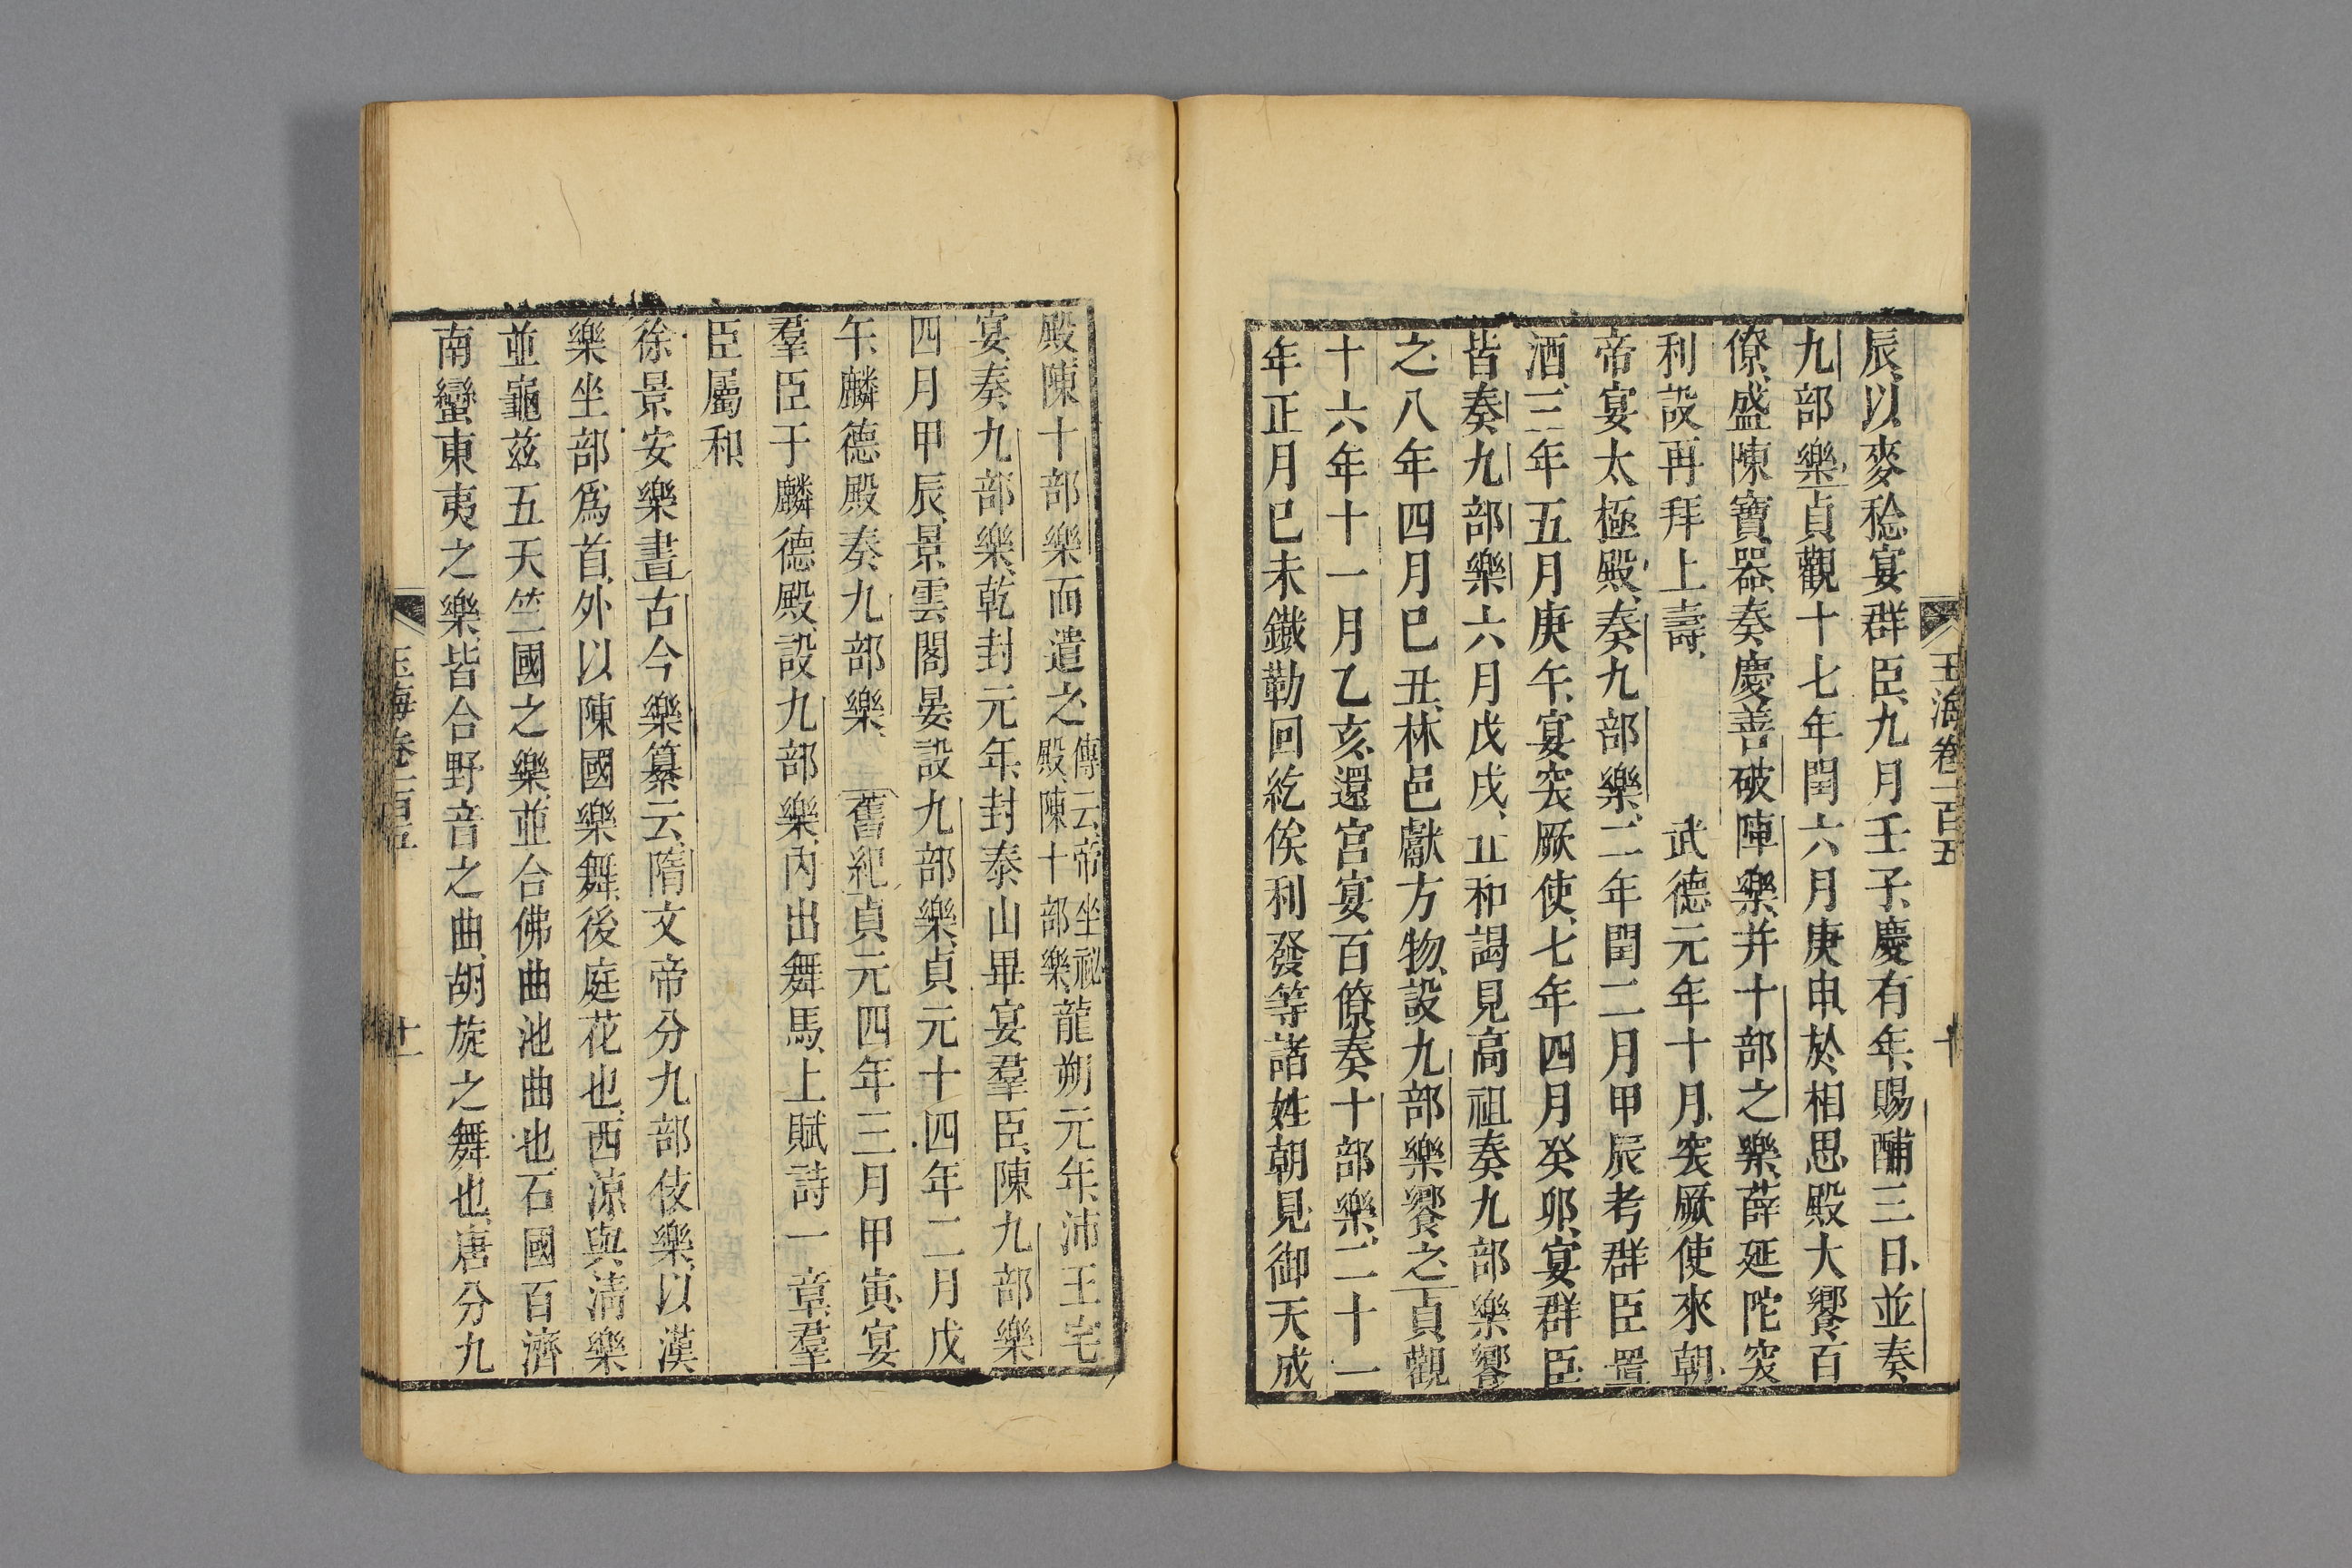 玉海卷一百五
十
辰以麥稔宴群臣九月壬子慶有年賜酺三日並奏
九部樂貞觀十七年閏六月庚申於相思殿大饗百
僚盛陳寶器奏慶善破陣樂并十部之樂薛延陀突
利設再拜上壽　武德元年十月突厥使來朝
帝宴太極殿奏九部樂二年閏二月甲辰考群臣置
酒三年五月庚午宴突厥使七年四月癸卯宴群臣
皆奏九部樂六月戊戌五和謁見高祖奏九部樂饗
之八年四月巳丑林邑獻方物設九部樂饗之貞觀
十六年十一月乙亥還宮宴百僚奏十部樂二十一
年正月巳未鐵勒回紇俟利發等諸姓朝見御天成
殿陳十部樂而遣之傳云帝坐祕殿陳十部樂龍朔元年沛王宅
宴奏九部樂乾封元年封泰山畢宴羣臣陳九部樂
四月甲辰景雲閣宴設九部樂貞元十四年二月戊
午麟德殿奏九部樂　舊紀貞元四年三月甲寅宴
羣臣于麟德殿設九部樂內出舞馬上賦詩一章羣
臣屬和
徐景安樂書古今樂纂云隋文帝分九部伎樂以漢
樂坐部爲首外以陳國樂舞後庭花也西涼與清樂
並龜茲五天竺國之樂並合佛曲池曲也石國百濟
南蠻東夷之樂皆合野音之曲胡旋之舞也唐分九
玉海卷一百五
十一